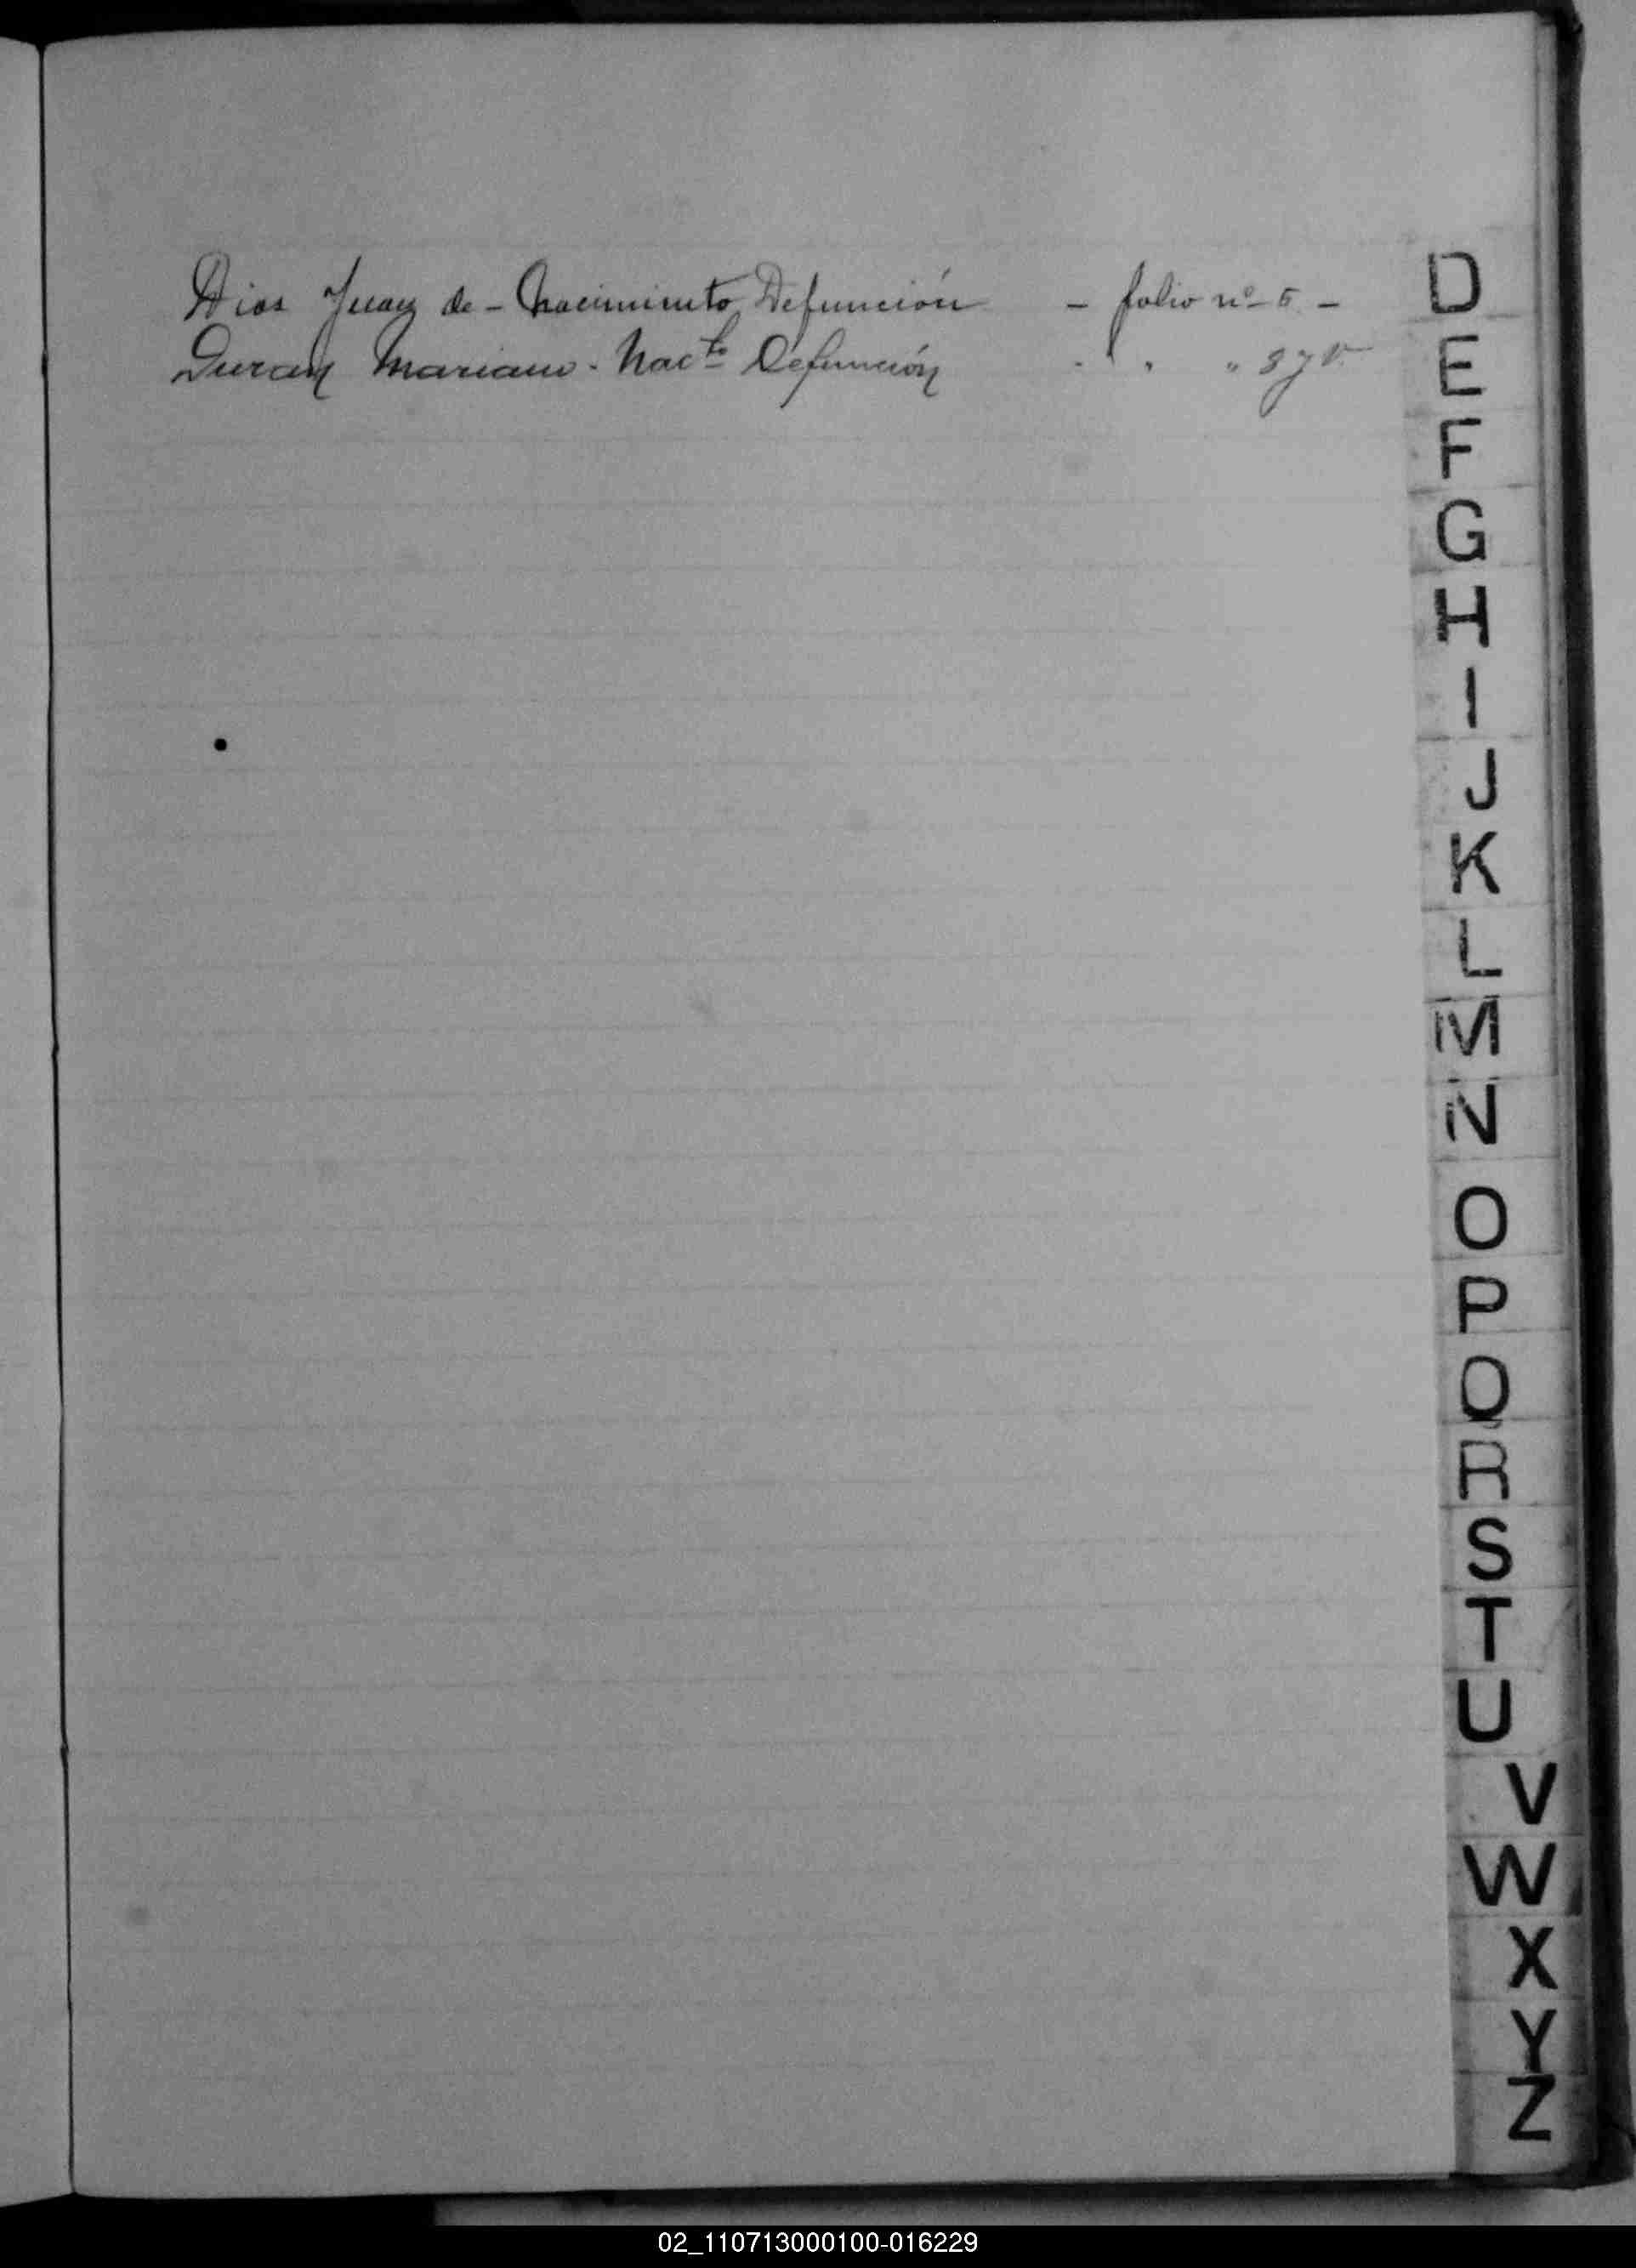 Dios Juan de - Nacimiento Defunción - folio nº 5 -
Duran Mariano - Nacto Defunción " " " 8 y v.
D
E
F
G
H
I
J
K
L
M
N
O
P
Q
R
S
T
U
V
W
X
Y
Z
02_110713000100-016229